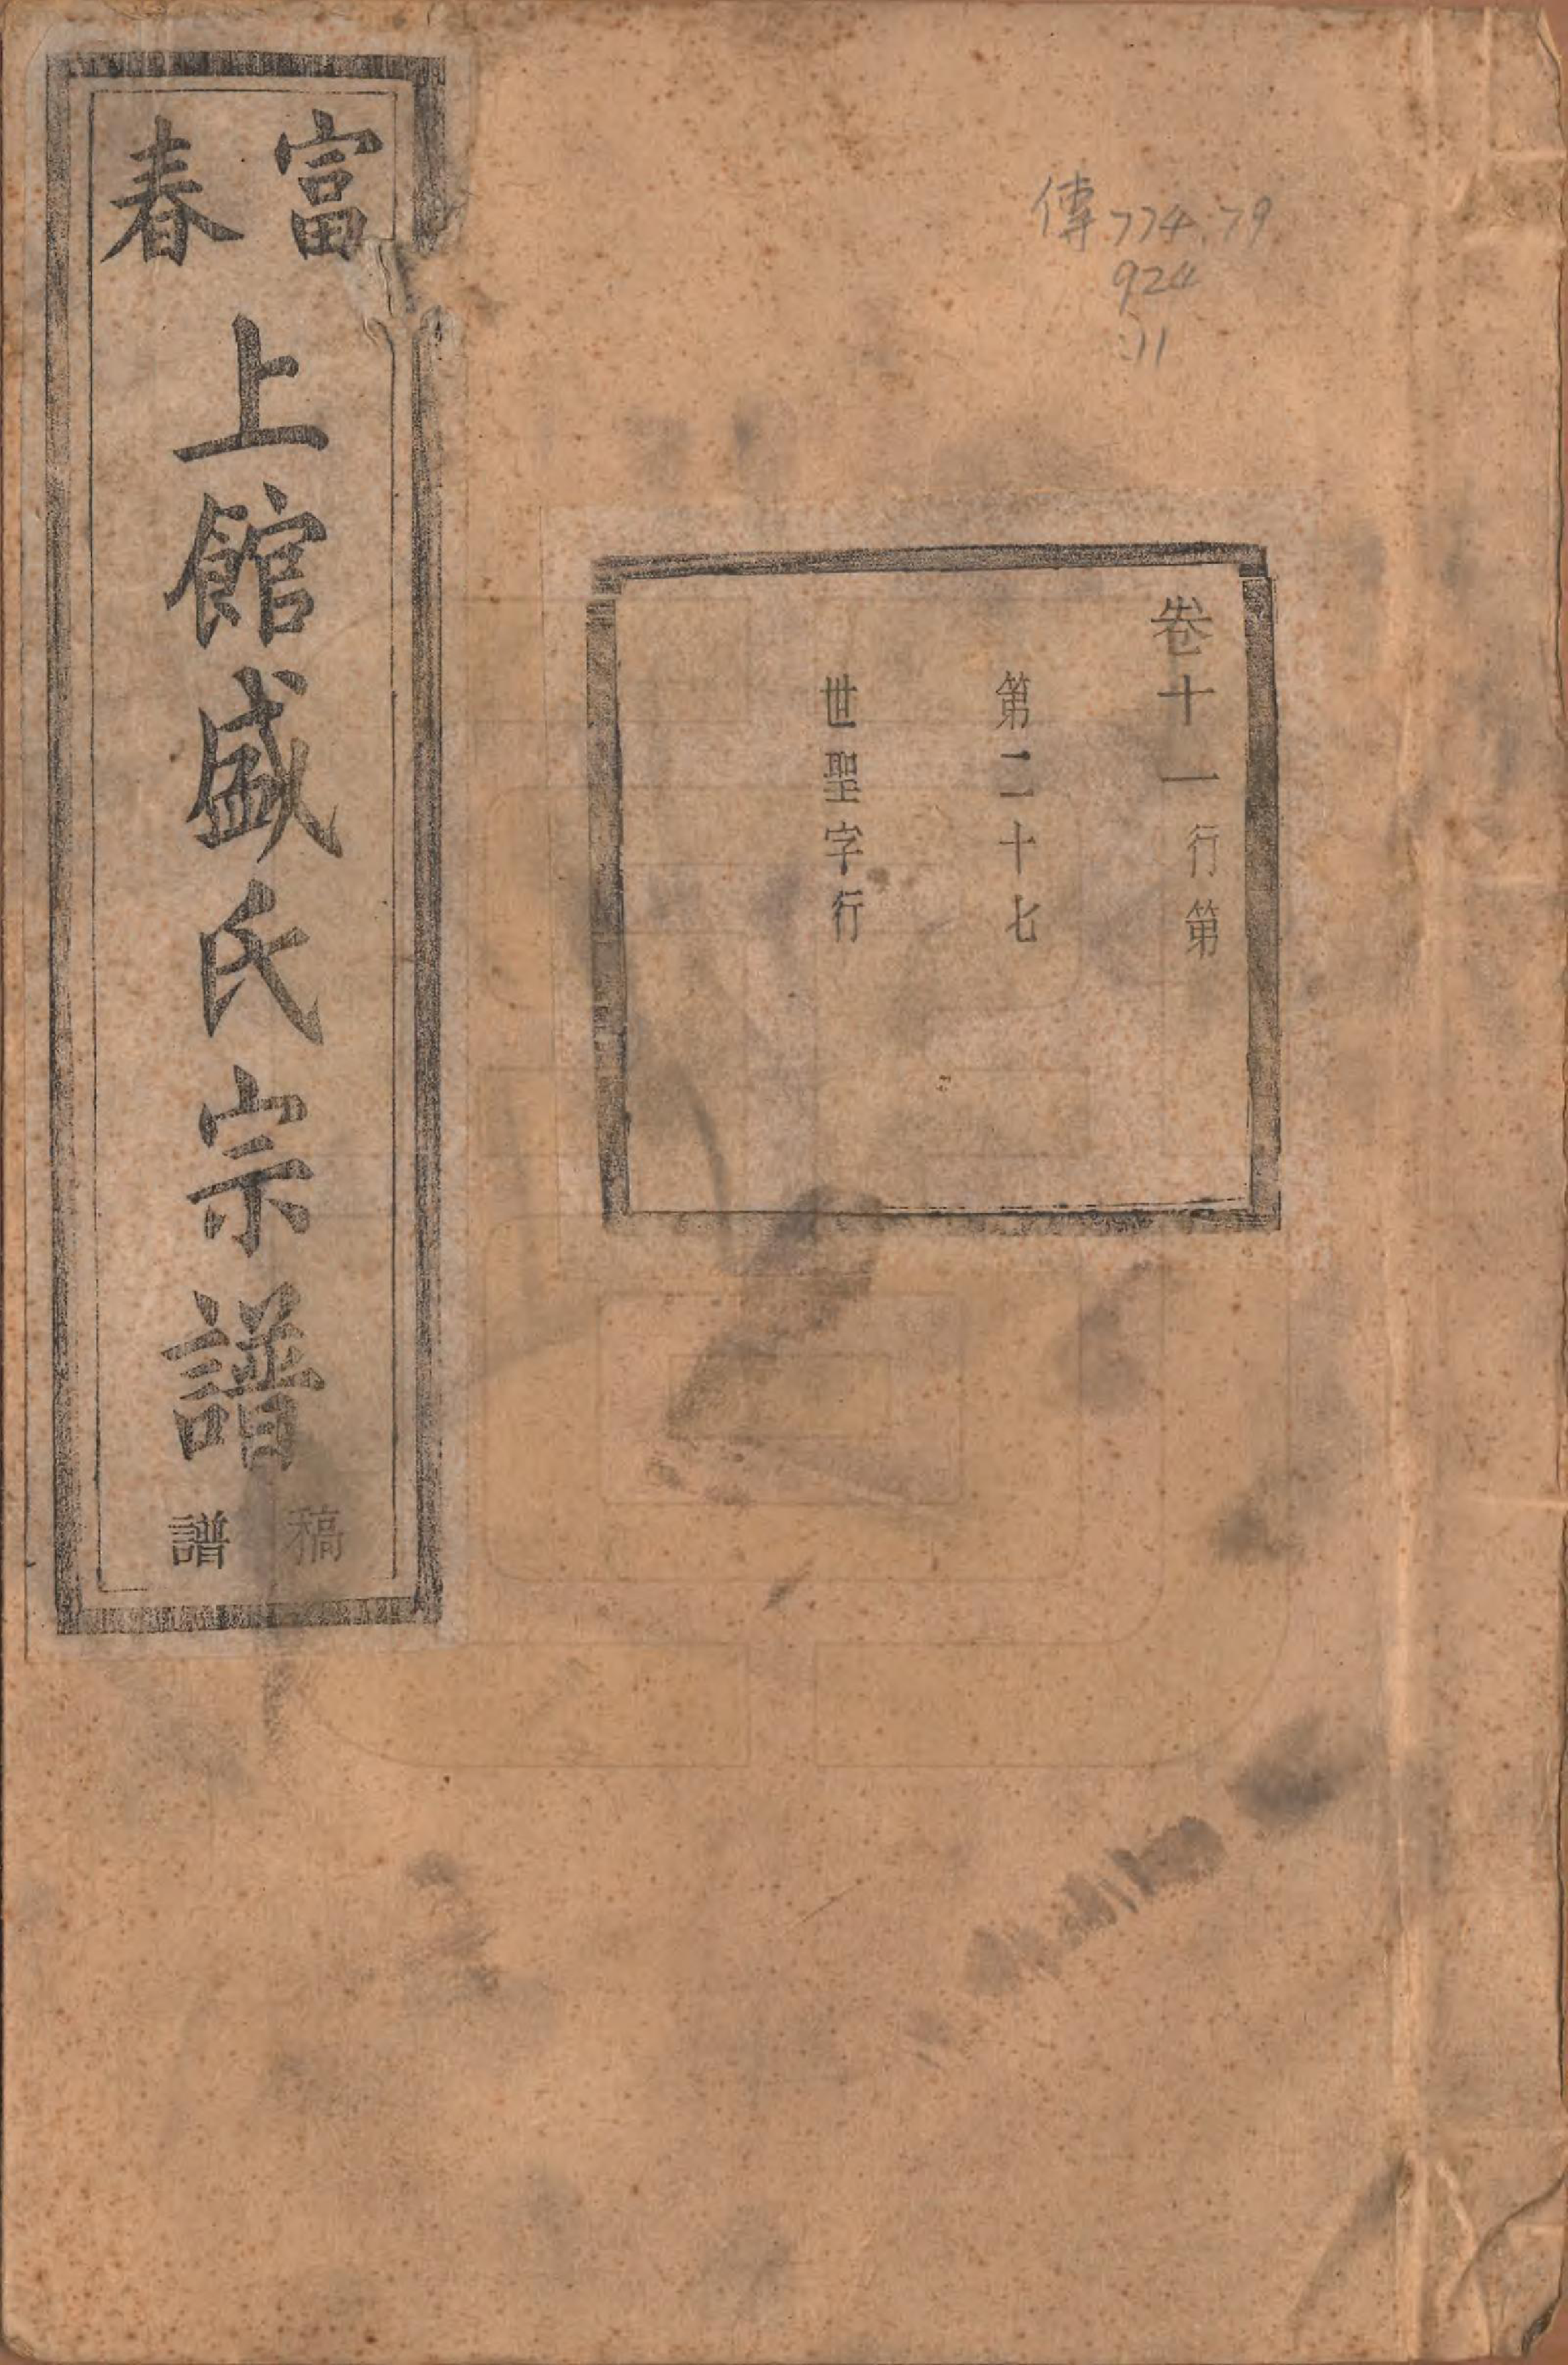 富春
上館盛氏宗譜
稿譜
傳774.79
924
:11
卷十一行第
第二十七
世聖字行